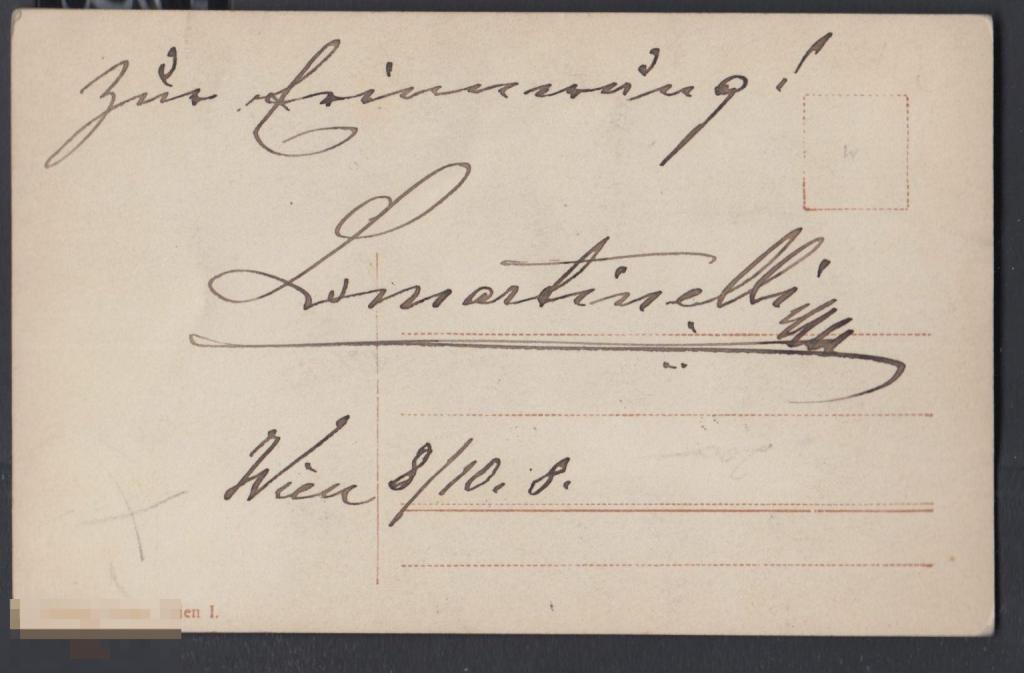 Zur Erinnerung!
Lomartinelli
Wien 8/10. 8.
ien I.